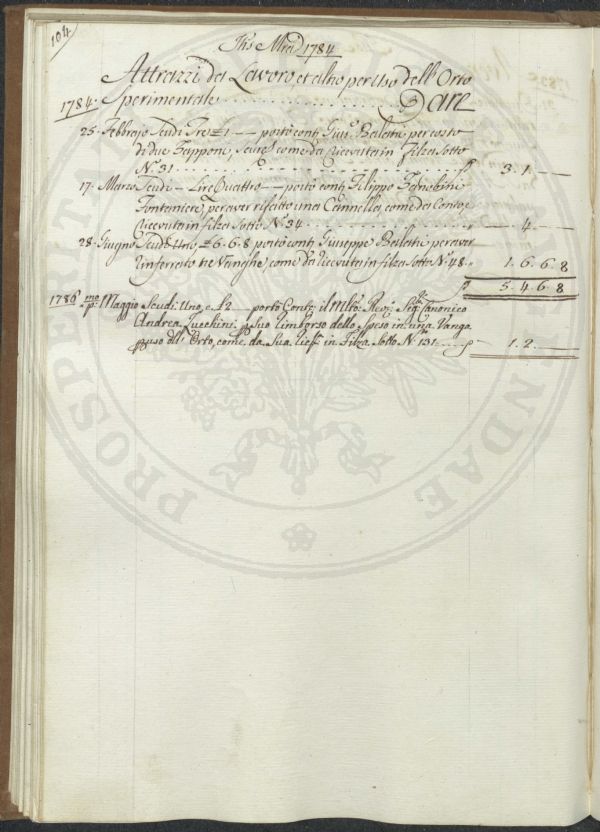 104
Jhs Mra 1784
Attrazzi da Lavoro, et altro per Uso dell'Orto
1784. Sperimentale . . . . . . . . . . Dare
25. Febbrajo Scudi Tre £ 1 — — portò conti Giu: per costo
di due Zapponi, come da ricevuta in Filza Sotto
N.° 31 . . . . . . . . . . 3. 1. —
17. Marzo Scudi — Lire Quattro — — portò conti Filippo
Fontaniere, per aver rifatto una Cannella, come da Conto, e
ricevuta in filza Sotto N.° 34 . . . . . — 4. —
28. Giugno Scudi Uno, £ 6. 6. 8 portò conti Giuseppe per aver
rinferrato tre Vanghe, come da ricevuta in filza Sotto N.° 48. 1. 6. 6. 8
5. 4. 6. 8
1786. p:mo Maggio Scudi Uno, e £ 2 — portò Conti il Mlto: Rev: Sig: Canonico
Andrea Zucchini p suo rimborso dello Speso in una Vanga
p uso dell' Orto, come da Sua in Filza Sotto N.° 131 — 1. 2. —
PROSPERITATI AUGENDAE